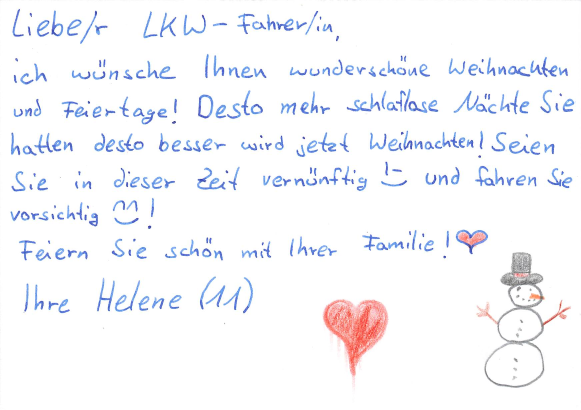 Liebe/r LKW-Fahrer/in,
ich wünsche Ihnen wunderschöne Weihnachten
und Feiertage! Desto mehr schlaflase Nächte Sie
hatten desto besser wird jetzt Weihnachten! Seien
Sie in dieser Zeit vernünftig und fahren Sie
vorsichtig !
Feiern Sie schön mit Ihrer Familie!
Ihre Helene (11)